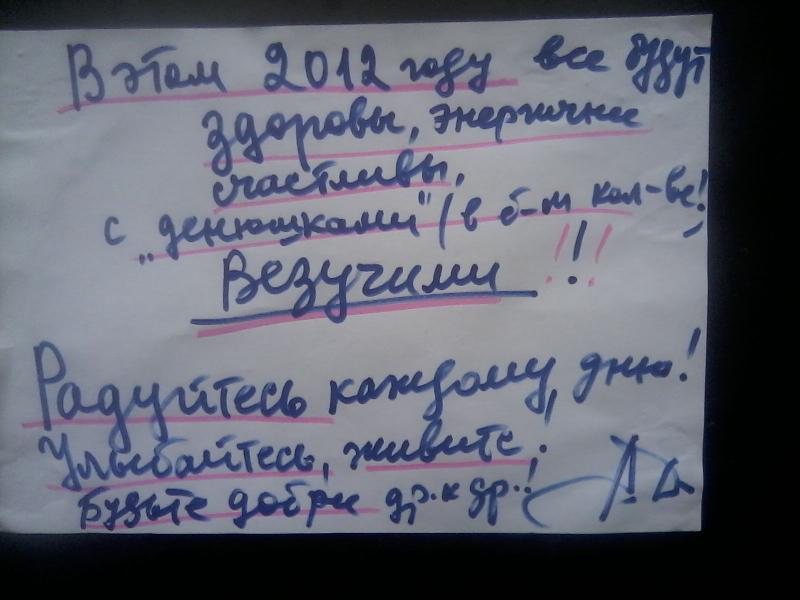 В этом 2012 году все будут
здоровы, энергичны
счастливы,
с „денюшками" (в б-м кол-ве!)
Везучими !!!
Радуйтесь каждому дню!
Улыбайтесь, живите,
будьте добры др. к др.!